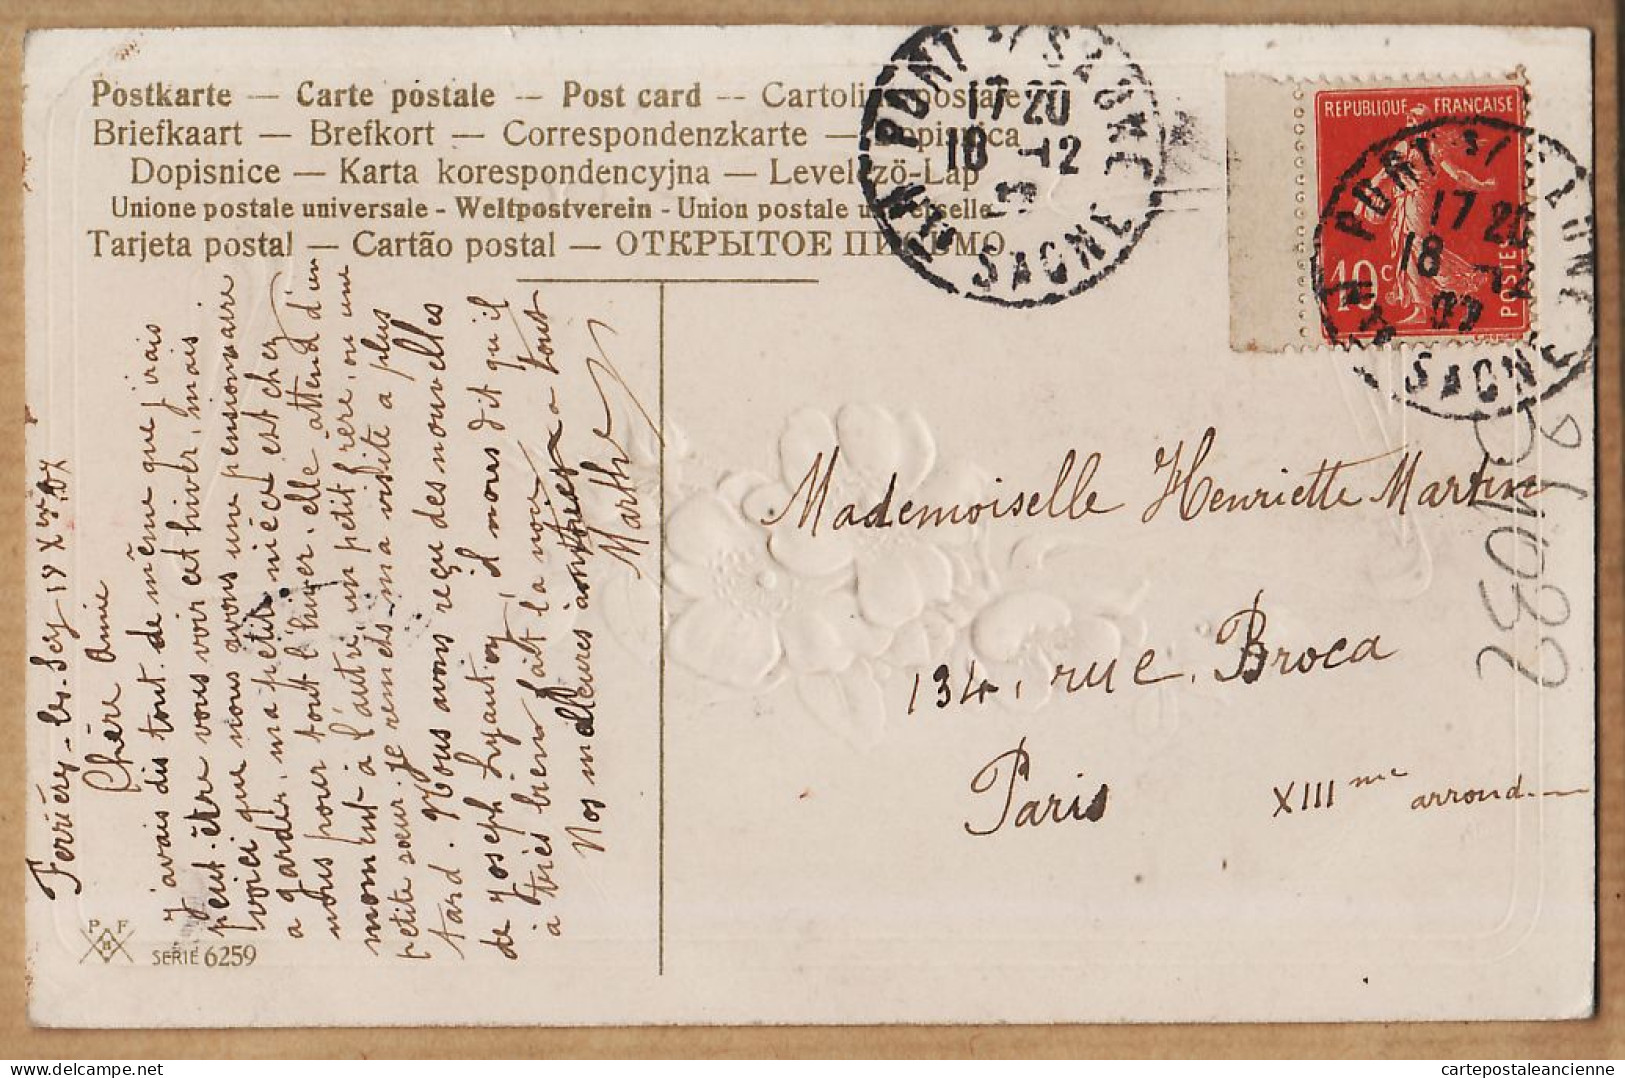 Postkarte — Carte postale — Post card -- Cartolina postale
Briefkaart — Brefkort — Correspondenzkarte — Dopisnica
Dopisnice — Karta korespondencyjna — Levelező-Lap
Unione postale universale - Weltpostverein - Union postale universelle
Tarjeta postal — Cartão postal — ОТКРЫТОЕ ПИСЬМО.
Ferrières-les-Sey 18 Xbre 07
Chère Amie
J'avais dis tout de même que j'irais
peut-être vous voir cet hiver, mais
voici que nous avons une pensionnaire
a garder, ma petite nièce est chez
nous pour tout l'hiver, elle attend d'un
moment à l'autre, un petit frère, ou une
petite soeur. Je remets ma visite a plus
tard. Nous avons reçu des nouvelles
de Joseph Lyautey, il nous dit qu'il
a très bien fait la noce
Nos meilleures amitiées a tout
Marthe
PFB
SERIE 6259
PONT s/ SAONE
17 20
18 -12
REPUBLIQUE FRANÇAISE
10 c
POSTES
PONT s/ SAONE
17 20
18 -12
07
Mademoiselle Henriette Martin
134, rue, Broca
Paris
XIII me arrond.
cartepostaleancienne